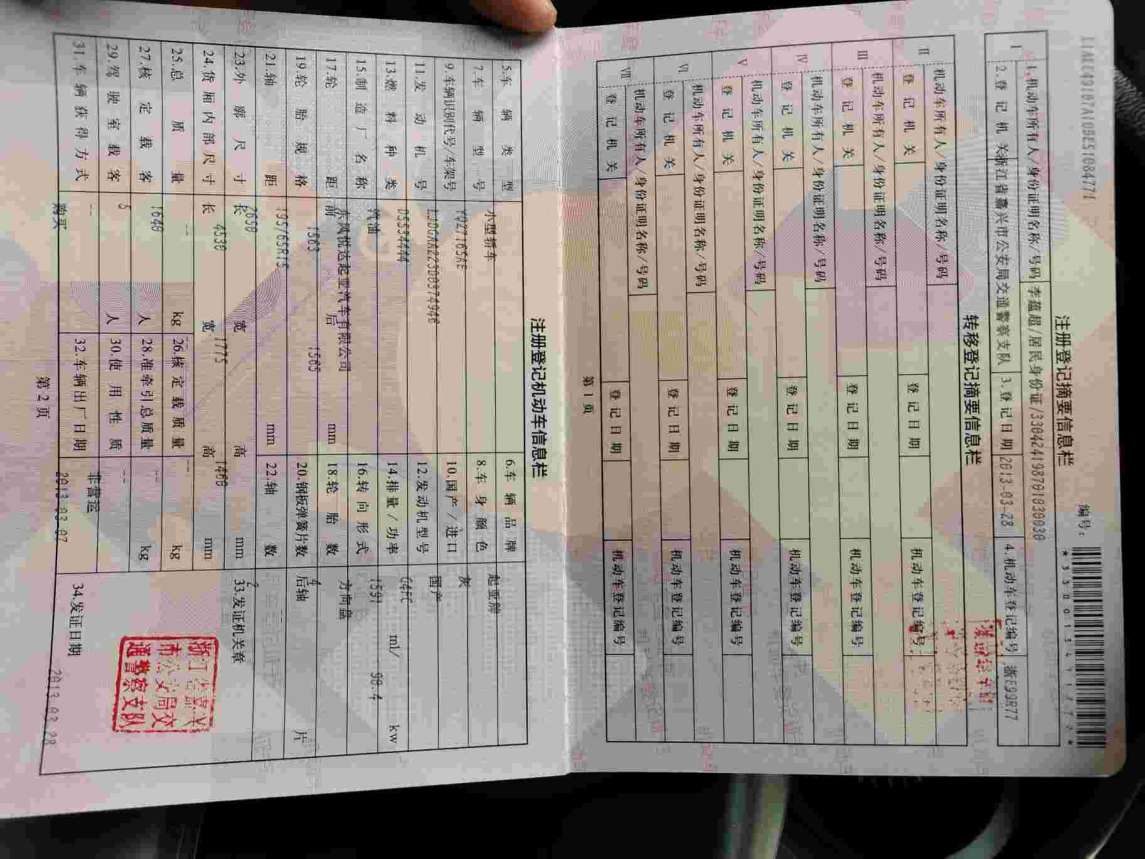 注册登记摘要信息栏
编号:
I
1.机动车所有人/身份证明名称/号码 李蕴超/居民身份证/330424198701030030
2.登记机关 浙江省嘉兴市公安局交通警察支队 3.登记日期 2013-03-28 4.机动车登记编号 浙F99R77
转移登记摘要信息栏
II
机动车所有人/身份证明名称/号码
登记机关 登记日期 机动车登记编号
III
机动车所有人/身份证明名称/号码
登记机关 登记日期 机动车登记编号
IV
机动车所有人/身份证明名称/号码
登记机关 登记日期 机动车登记编号
V
机动车所有人/身份证明名称/号码
登记机关 登记日期 机动车登记编号
VI
机动车所有人/身份证明名称/号码
登记机关 登记日期 机动车登记编号
VII
机动车所有人/身份证明名称/号码
登记机关 登记日期 机动车登记编号
第1页
注册登记机动车信息栏
5.车辆类型 小型轿车 6.车辆品牌 起亚牌
7.车辆型号 YQZ7165AE 8.车身颜色 灰
9.车辆识别代号/车架号 10.国产/进口 国产
11.发动机号 12.发动机型号 G4FC
13.燃料种类 汽油 14.排量/功率 1591 ml/ 90.4 kw
15.制造厂名称 东风悦达起亚汽车有限公司 16.转向形式 方向盘
17.轮距 前 1563 后 1565 mm 18.轮胎数 4
19.轮胎规格 195/65R15 20.钢板弹簧片数 后轴 片
21.轴距 2650 mm 22.轴数 2
23.外廓尺寸 长 4530 宽 1775 高 1460 mm
24.货厢内部尺寸 长 宽 高 mm
25.总质量 1640 kg 26.核定载质量 -- kg
27.核定载客 5 人 28.准牵引总质量 -- kg
29.驾驶室载客 -- 人 30.使用性质 非营运
31.车辆获得方式 购买 32.车辆出厂日期 2013-03-07
33.发证机关章
浙江省嘉兴
市公安局交
通警察支队
34.发证日期 2013-03-28
第2页